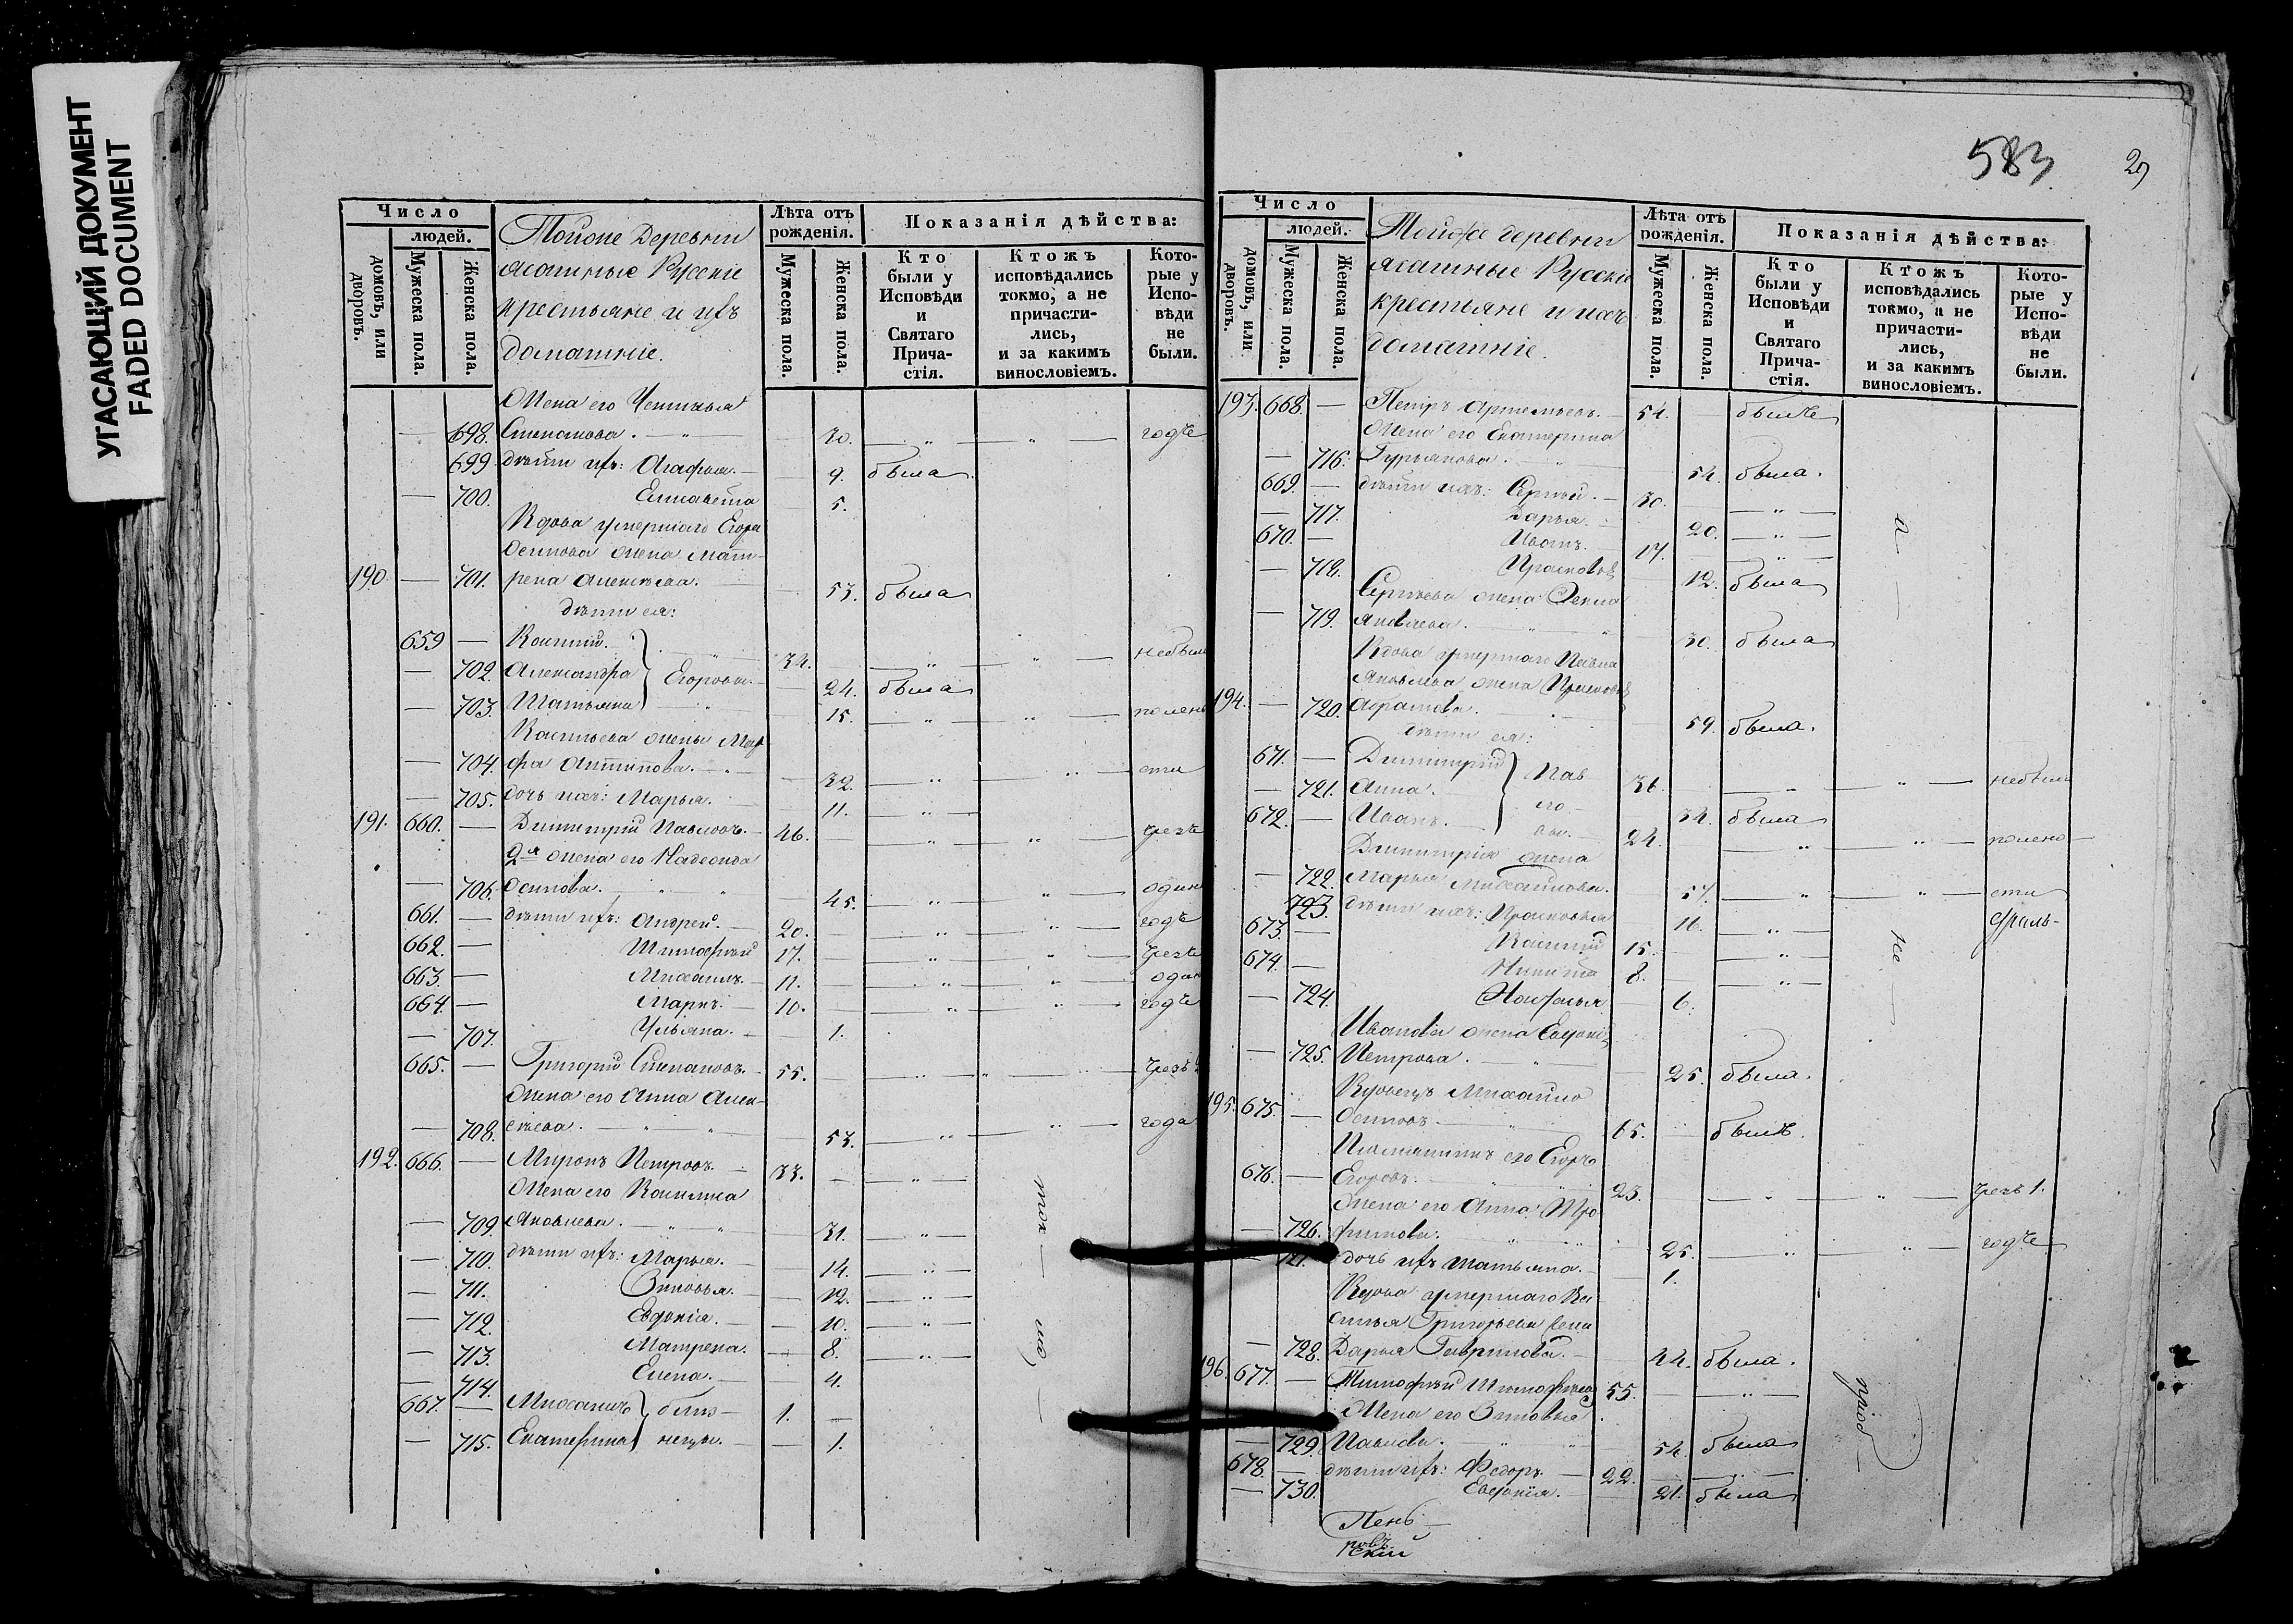 УГАСАЮЩИЙ ДОКУМЕНТ
FADED DOCUMENT
Число
людей.
домовъ, или дворовъ.
Мужеска пола.
Женска пола.
Тойже деревни
ясашные Русскіе
крестьяне и ихъ
домашніе.
Лѣта отъ рожденія.
Мужеска пола.
Женска пола.
Показанія дѣйства:
Кто были у Исповѣди и Святаго Прича-стія.
Ктожъ исповѣдались токмо, а не причасти-лись, и за какимъ винословіемъ.
Кото-рые у Испо-вѣди не были.
Жена его
— 698. Степанова. — " — 30. — " — " — годъ
699. дѣти ихъ: Агафья. — 9. была
— 700. Елисавета — 5.
Вдова умершаго Егора
Осипова жена Мат-
190 — 701. рена Алексѣева. — 53. была
дѣти ея:
659 — Василій. 34. — " — " — небыли
— 702. Александра } Егоровы. — 24. была
— 703. Татьяна — 15. — " — " — полено
Васильева жена Мар-
— 704. фа Антипова. — " — 32. — " — " — сти
— 705. дочь ихъ: Марья. — 11. — " —
191. 660. — Димитрій Павловъ. — 46. — " — " — чрезъ
2я жена его Надежда
— 706. Осипова. — " — 45. — " — " — одинъ
661. — дѣти ихъ: Андрей. — 20. — " — " — годъ
662. — Тимофѣй 17. — " — " — чрезъ
663. — Михаилъ. — 11. — " — " — одинъ
664. — Маркъ. — 10. — " — " — годъ
— 707. Ульяна. — 1.
665. — Григорій Степановъ. — 55. — " — " — чрезъ
Жена его Анна Алек-
— 708. сѣева. — " — 53. — " — " — года
192. 666. — Миронъ Петровъ. — 33. — " —
Жена его Василиса
— 709. Яковлева. — " — 31. — " —
— 710. дѣти ихъ: Марья. — 14. — " —
— 711. Зиновья. — 12. — " —
— 712. Евдокія. — 10. — " —
— 713. Матрена. — 8. — " —
— 714. Елена. — 4.
667. — Михаилъ } близ- 1. —
— 715. Екатерина } нецы. — 1.
583
29
Число
людей.
домовъ, или дворовъ.
Мужеска пола.
Женска пола.
Тойже деревни
ясашные Русскіе
крестьяне и ихъ
домашніе.
Лѣта отъ рожденія.
Мужеска пола.
Женска пола.
Показанія дѣйства:
Кто были у Исповѣди и Святаго Прича-стія.
Ктожъ исповѣдались токмо, а не причасти-лись, и за какимъ винословіемъ.
Кото-рые у Испо-вѣди не были.
193. 668. — Петръ Артемьевъ. — 54. — былъ
Жена его Екатерина
— 716. Гурьянова. — " — 54. была.
669. — дѣти ихъ: Сергѣй. — 30. — " —
— 717. Дарья. — 20. — " —
670. — Иванъ. — 17. — " —
— 718. Прасковья — 12. была
Сергѣева жена Ѳекла
— 719. Яковлева. — " — 30. была
Вдова умершаго Павла
Яковлева жена Прасковья
194. — 720. Абрамова. — 59. была.
дѣти ея:
671. — Димитрій } Пав- 36. — " — " — небыли
— 721. Анна. } ло- 34. была
672. — Иванъ. } вы. — 24. — " — " — полено-
Димитрія жена
— 722. Марья Михаилова. — 37. — " — " — сти
723. дѣти ихъ: Прасковья 16. — " —
673. — Василій 15. — " —
674. — Никита 8. — " —
— 724. Наталья — 6.
Иванова жена Евдокія
— 725. Петрова. — " — 25. была.
Вдовецъ Михайло
195. 675. — Осиповъ. — " — 65. — былъ.
Племянникъ его Егоръ
676. — Егоровъ. 23. — " — " — чрезъ 1.
Жена его Анна Тро-
— 726. фимова. 25. — " — " — годъ
727. дочь ихъ Татьяна. — 1.
Вдова умершаго Ва-
силья Григорьева жена
— 728. Дарья Гаврилова. — 44. была.
196. 677. — Тимофѣй Тимофѣевъ 55. — " —
Жена его Зиновья
— 729. Павлова. — " — 54. была
678. — дѣти ихъ: Федоръ. — 22. — " —
— 730. Евдокія. — 21. была